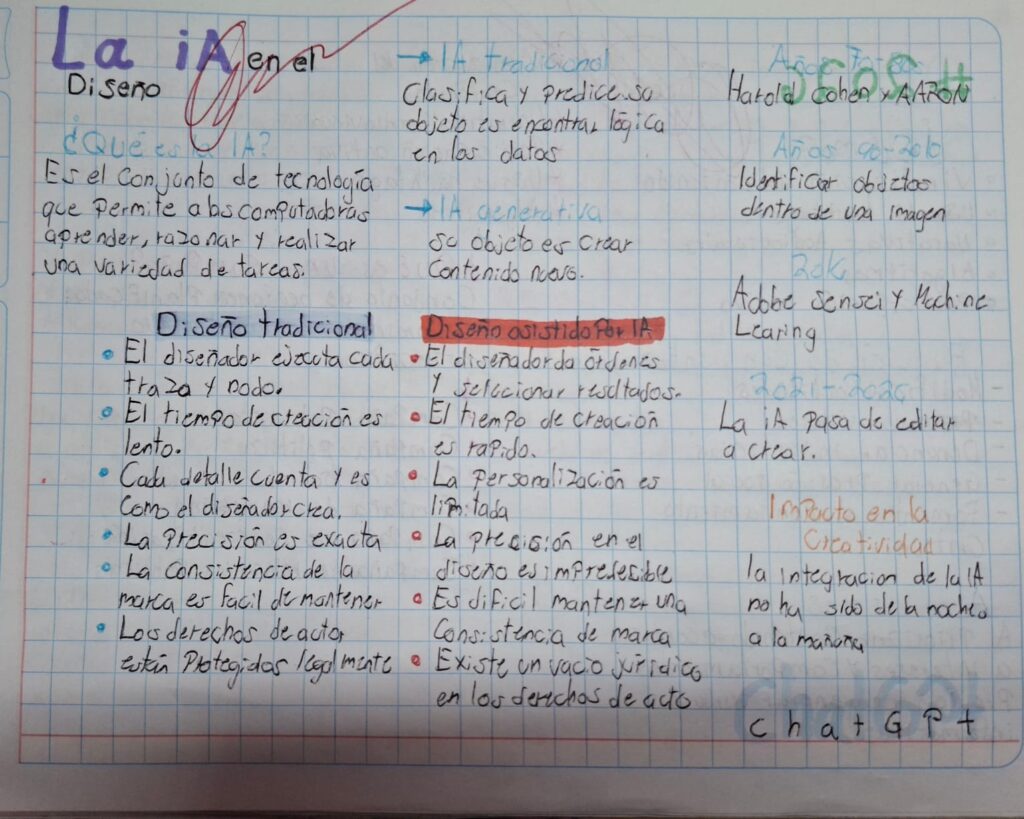 La iA en el
Diseño
¿Qué es la IA?
Es el conjunto de tecnología
que permite a las computadoras
aprender, razonar y realizar
una variedad de tareas.
→ IA tradicional
Clasifica y predice su
objeto es encontrar lógica
en los datos
→ IA generativa
su objeto es crear
contenido nuevo.
Diseño tradicional
• El diseñador ejecuta cada
traza y nodo.
• El tiempo de creación es
lento.
• Cada detalle cuenta y es
como el diseñador crea.
• La precisión es exacta
• La consistencia de la
marca es facil de mantener
• Los derechos de actor
están protegidos legalmente
Diseño asistido por IA
• El diseñador da órdenes
y seleccionar resltados.
• El tiempo de creación
es rapido.
• La personalización es
limitada
• La precisión en el
diseño es impredesible
• Es dificil mantener una
consistencia de marca
• Existe un vacio jurídico
en los derechos de acto
Años
Harold Cohen y AARON
Años 90-2010
Identificar objetos
dentro de una imagen
Adobe Sensei y Machine
Learing
La iA pasa de editar
a crear.
Impacto en la
Creatividad
la integracion de la IA
no ha sido de la noche
a la mañana
chatGPt